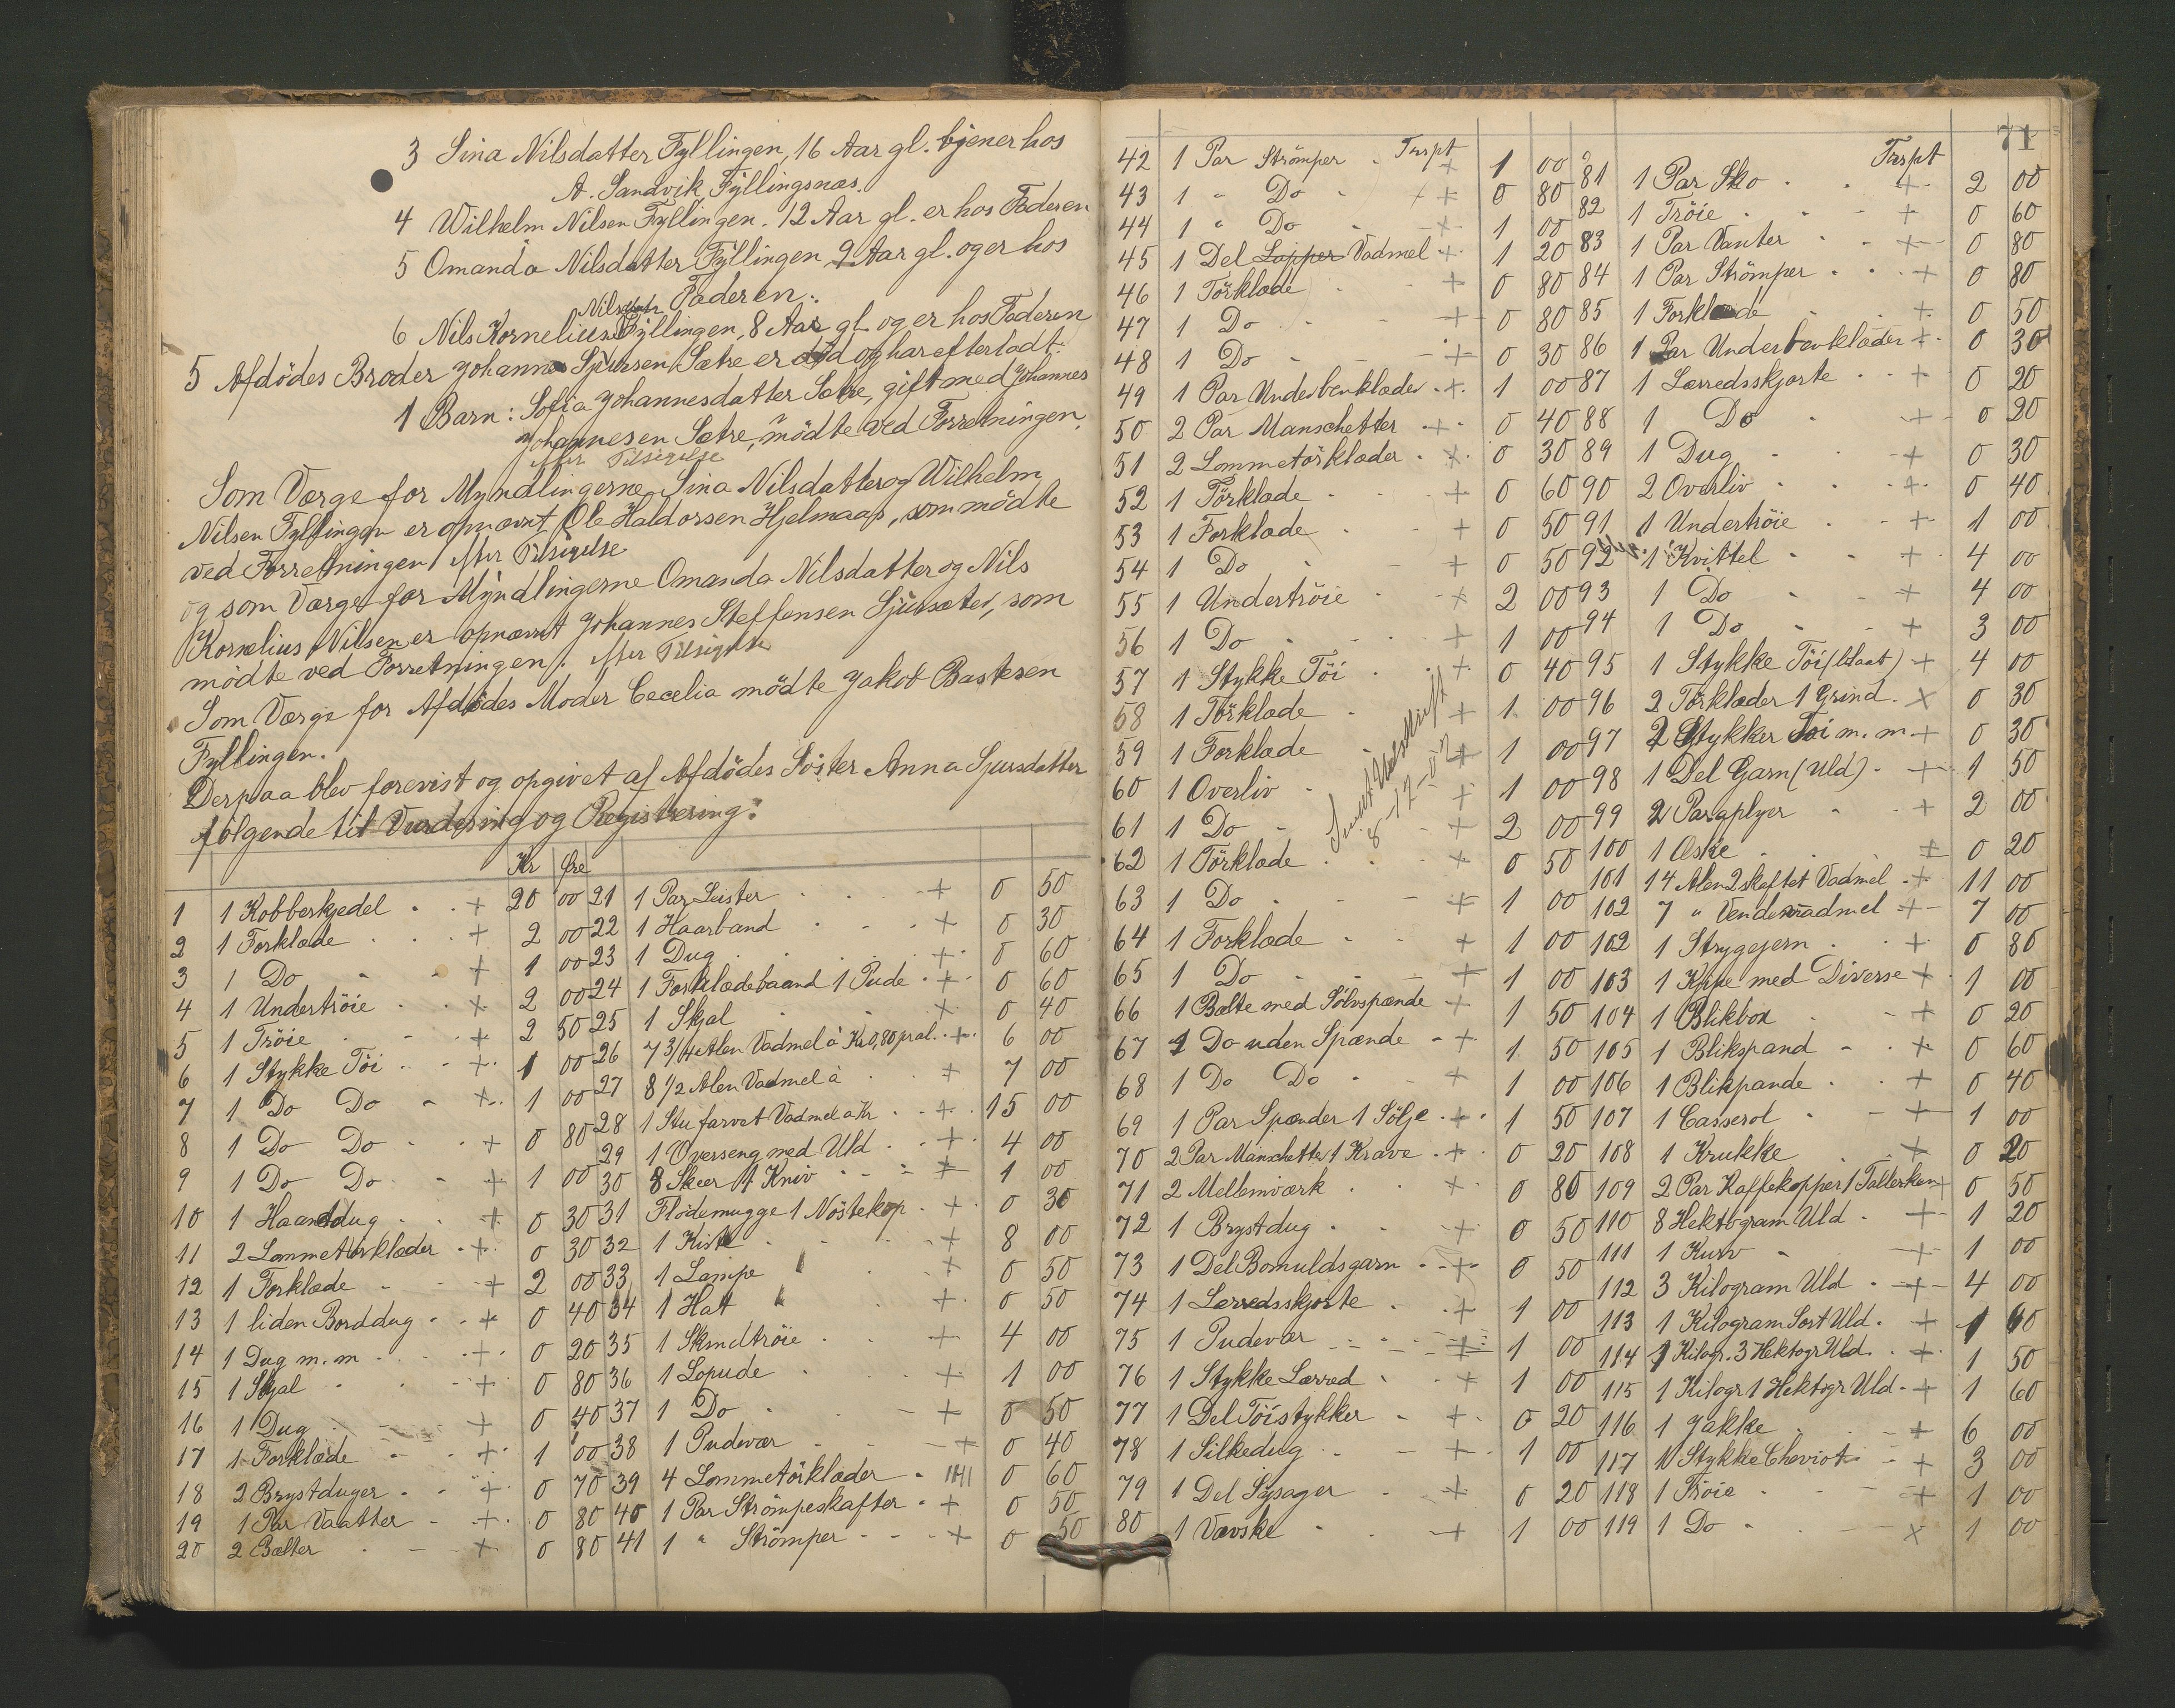 3 Sina Nilsdatter Fyllingen, 16 Aar gl. tjener hos
A. Sandvik, Fyllingsnæs.
4 Wilhelm Nilsen Fyllingen. 12 Aar gl. er hos Faderen
5 Omanda Nilsdatter Fyllingen 9 Aar gl. og er hos
Faderen.
6 Nils Kornelius Fyllingen, 8 Aar gl og er hos Faderen
5 Afdödes Broder Johannes Sjursen Sætre er död og har efterladt
1 Barn: Sofia Johannesdatter Sætre, gift med Johannes
Johannesen Sætre, mödte ved Forretningen.
efter Tilsigelse
Som Værge for Myndlingerne Sina Nilsdatter og Wilhelm
Nilsen Fyllingen er opnævnt Ole Haldorsen Hjelmaas, som mödte
ved Forretningen efter Tilsigelse
og som Værge for Myndlingerne Omanda Nilsdatter og Nils
Kornelius Nilsen er opnævnt Johannes Steffensen Sjursæter, som
mödte ved Forretningen. efter Tilsigelse
Som Værge for Afdödes Moder Cecelia mödte Jakob Bastesen
Fyllingen.
Derpaa blev forevist og opgivet af Afdödes Söster Anna Sjursdatter
følgende til Vurdering og Registrering:
Kr Øre
1 1 Kobberkjedel + 20 00
2 1 Forklæde + 2 00
3 1 Do + 1 00
4 1 Undertröie + 2 00
5 1 Tröie + 2 50
6 1 Stykke Töi + 1 00
7 1 Do Do + 1 00
8 1 Do Do + 0 80
9 1 Do Do + 1 00
10 1 Haanddug + 0 30
11 2 Lommetörklæder + 0 30
12 1 Forklæde + 2 00
13 1 liden Borddug + 0 40
14 1 Dug m. m + 0 20
15 1 Skjal + 0 80
16 1 Dug + 0 40
17 1 Forklæde + 1 00
18 2 Brystduger + 0 70
19 1 Par Vaatter + 0 80
20 2 Bælter + 0 80
21 1 Par Leister + 0 50
22 1 Haarbaand + 0 30
23 1 Dug + 0 60
24 1 Forklædebaand 1 Pude + 0 60
25 1 Skjal + 0 40
26 7 3/4 Alen Vadmel à Kr 0,80 pr al. + 6 00
27 8 1/2 Alen Vadmel à + 7 00
28 1 Stu farvet Vadmel a Kr + 15 00
29 1 Overseng med Uld + 4 00
30 8 Skeer 1 Kniv + 1 00
31 Flödemugge 1 Nöstekop + 0 30
32 1 Kiste + 8 00
33 1 Lampe + 0 50
34 1 Hat + 0 50
35 1 Skindtröie + 4 00
36 1 Lopude + 1 00
37 1 Do + 0 50
38 1 Pudevær + 0 40
39 4 Lommetörklæder 0 60
40 1 Par Strömpeskafter + 0 50
41 1 " Strömper + 0 50
71
Trspt
42 1 Par Strömper + 1 00
43 1 " Do + 0 80
44 1 " Do + 1 00
45 1 Del Lapper Vadmel + 1 20
46 1 Törklæde + 0 80
47 1 Do + 0 80
48 1 Do + 0 30
49 1 Par Underbenklæder + 1 00
50 2 Par Manschetter + 0 40
51 2 Lommetörklæder + 0 30
52 1 Törklæde + 0 60
53 1 Forklæde + 0 50
54 1 Do + 0 50
55 1 Undertröie + 2 00
56 1 Do + 1 00
57 1 Stykke Töi + 0 40
58 1 Törklæde + 1 00
59 1 Forklæde + 1 00
60 1 Overliv + 1 00
61 1 Do + 2 00
62 1 Törklæde + 0 50
63 1 Do + 1 00
64 1 Forklæde + 1 00
65 1 Do + 1 00
66 1 Bælte med Sölvspænde + 1 50
67 1 Do uden Spænde + 1 50
68 1 Do Do + 1 00
69 1 Par Spænder 1 Sölje + 1 50
70 2 Par Manschetter 1 Krave + 0 20
71 2 Mellemværk + 0 80
72 1 Brystdug + 0 50
73 1 Del Bomuldsgarn + 0 50
74 1 Lærredsskjorte + 1 00
75 1 Pudevær + 1 00
76 1 Stykke Lærred + 1 00
77 1 Del Töistykker + 0 20
78 1 Silkedug + 1 00
79 1 Del Sysager + 0 20
80 1 Vævske + 1 00
8-12-02
Trspt
81 1 Par Sko + 2 00
82 1 Tröie + 0 60
83 1 Par Vanter + 0 80
84 1 Par Strömper + 0 80
85 1 Forklæde + 0 50
86 1 Par Underbenklæder + 0 30
87 1 Lærredsskjorte + 0 20
88 1 Do + 0 20
89 1 Dug + 0 30
90 2 Overliv + 0 40
91 1 Undertröie + 1 00
92 1 Kvittel + 4 00
93 1 Do + 4 00
94 1 Do + 3 00
95 1 Stykke Töi (blaat) + 4 00
96 2 Törklæder 1 Grind x 0 30
97 2 Stykker Töi m. m + 0 30
98 1 Del Garn (Uld) + 1 50
99 2 Paraplyer + 2 00
100 1 Æske + 0 20
101 14 Alen 2 skeftet Vadmel + 11 00
102 7 " Vendevadmel + 7 00
102 1 Strygejern + 0 80
103 1 Kippe med Diverse + 1 00
104 1 Blikbox + 0 20
105 1 Blikspand + 0 60
106 1 Blikpande + 0 40
107 1 Casserol + 1 00
108 1 Krukke + 0 20
109 2 Par Kaffekopper 1 Tallerken + 0 50
110 8 Hektogram Uld + 1 20
111 1 Kurv + 1 00
112 3 Kilogram Uld + 4 00
113 1 Kilogram Sort Uld + 1 60
114 1 Kilogr. 3 Hektogr Uld + 1 50
115 1 Kilogr 1 Hektogr Uld + 1 60
116 1 Jakke + 6 00
117 1 Stykke Cheviot + 3 00
118 1 Tröie + 1 00
119 1 Do x 1 00